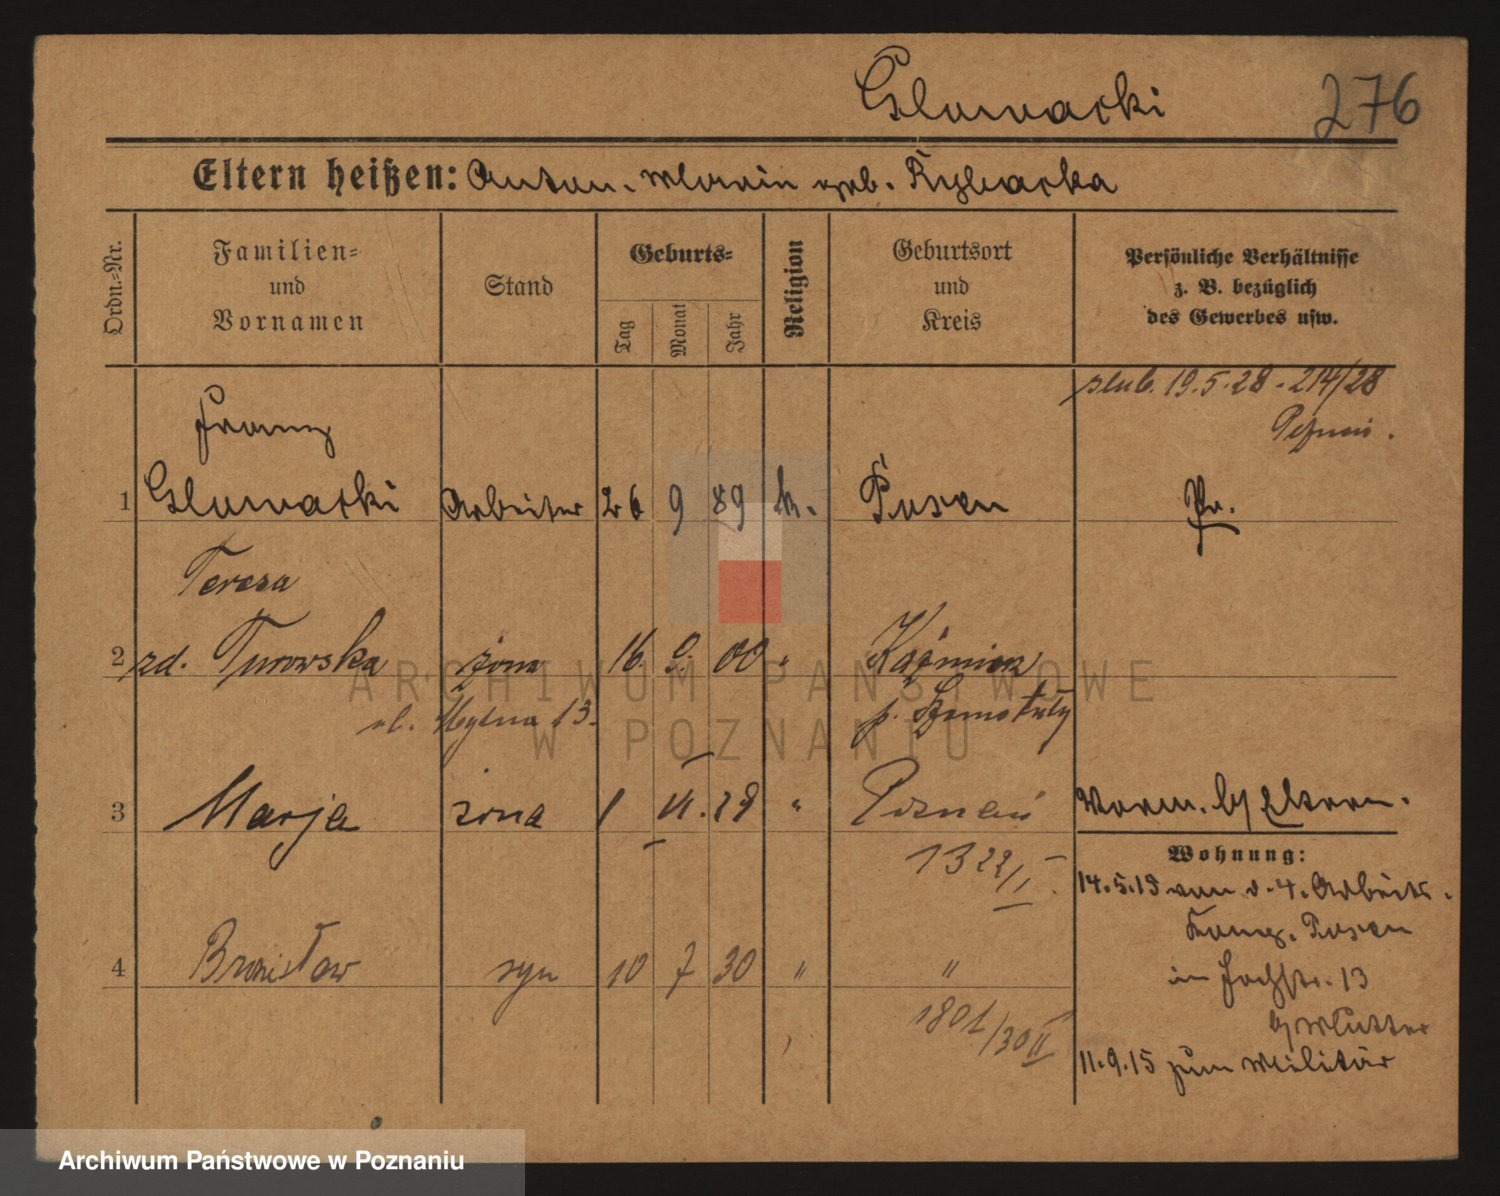 Glowacki 276
Eltern heißen: Anton. Marie geb. Rybacka
Ordn.-Nr.
Familien-
und
Vornamen
Stand
Geburts-
Tag
Monat
Jahr
Religion
Geburtsort
und
Kreis
Persönliche Verhältnisse
z. B. bezüglich
des Gewerbes usw.
slub. 19.5.28 - 214/28
Poznań.
Franz
1 Glowacki Arbeiter 26 9 89 k. Posen Pr.
Teresa
2 zd. Turowska żona 16. 9. 00 " Kaźmierz
ul. 13. p. Szamotuły
3 Marja 1 VI. 28 " Poznań Vorm. by Eltern.
1322/I
Wohnung:
14.5.19 von d. 4. Arbeits.
Komp. Posen
in 13
by Mutter
11.9.15 zum Militär
4 Bronisław syn 10 7 30 " "
1801/30 II
ARCHIWUM PAŃSTWOWE
W POZNANIU
Archiwum Państwowe w Poznaniu